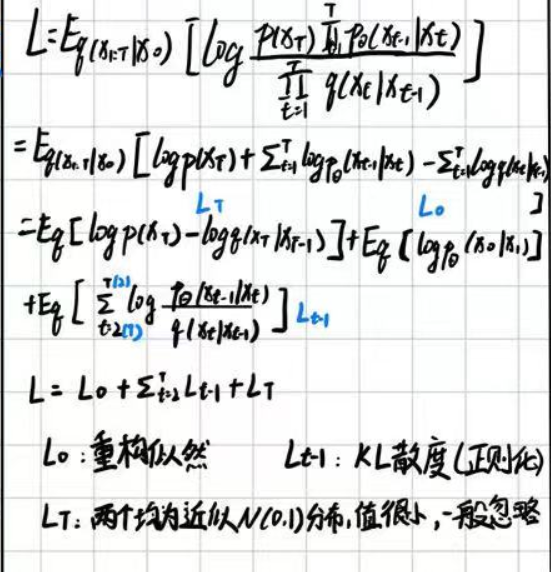 L=E_{q(x_{1:T}|x_0)} [log \frac{p(x_T) \prod_{t=1}^{T} p_θ(x_{t-1}|x_t)}{\prod_{t=1}^{T} q(x_t|x_{t-1})}]
=E_{q(x_{1:T}|x_0)} [log p(x_T) + Σ_{t=1}^{T} log p_θ(x_{t-1}|x_t) - Σ_{t=1}^{T} log q(x_t|x_{t-1})]
L_T L_0
=E_q [log p(x_T) - log q(x_T|x_{T-1})] + E_q [log p_θ(x_0|x_1)]
+E_q [\sum_{t=2}^{T} log \frac{p_θ(x_{t-1}|x_t)}{q(x_t|x_{t-1})}] L_{t-1}
L = L_0 + Σ_{t=2}^{T} L_{t-1} + L_T
L_0:重构似然 L_{t-1}:KL散度(正则化)
L_T:两个均为近似N(0,1)分布,值很小,一般忽略